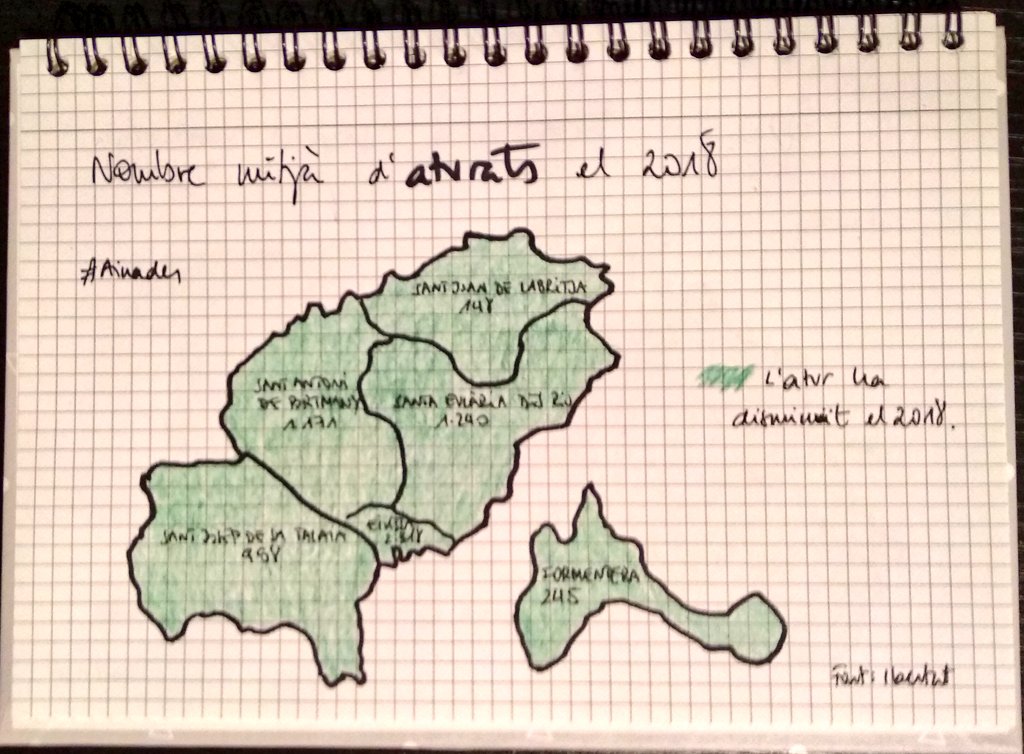 Nombre mitjà d'aturats el 2018
#Ainades
SANT JOAN DE LABRITJA
148
SANT ANTONI
DE PORTMANY
1.171
SANTA EULÀRIA DES RIU
1.240
L'atur ha
disminuït el 2018.
EIVISSA
SANT JOSEP DE LA TALAIA
958
FORMENTERA
245
Font: Ibestat